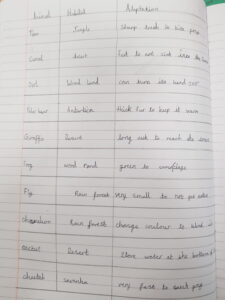 Animal Habitat Adaptation
Tiger Jungle Sharp teeth to bite prey
Camel desert Feet to not sink into the
Owl Wood land can turn its head 360°
Polar bear Antartica thick fur to keep it warm
Giraffe Desert long neck to reach the leaves
frog wood pond green to camoflage
Fly Rain forest very small to not get eaten
chameleon Rain forest change coulour to blend in
cactus Desert Store water at the bottom of
cheetah savanha very fast to catch prey